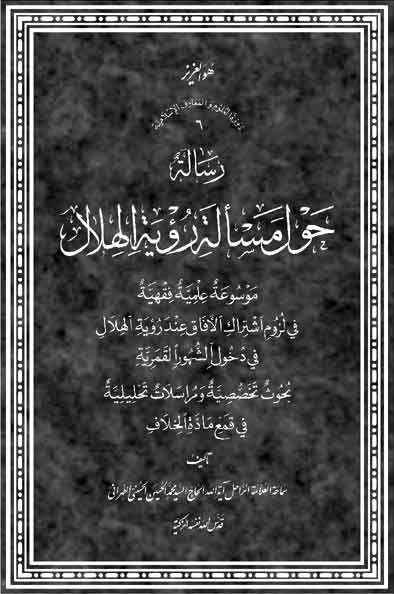 هُوَ العَزِيز
دورة العلوم والمعارف الإسلامية
٦
رِسَالَةٌ
حَوْلَ مَسْأَلَةِ رُؤْيَةِ الهِلَالِ
مَوْسُوعَةٌ عِلْمِيَّةٌ فِقْهِيَّةٌ
فِي لُزُومِ اشْتِرَاكِ الآفَاقِ عِنْدَ رُؤْيَةِ الهِلَالِ
فِي دُخُولِ الشُّهُورِ القَمَرِيَّةِ
بُحُوثٌ تَخَصُّصِيَّةٌ وَمُرَاسَلَاتٌ تَحْلِيلِيَّةٌ
فِي قَمْعِ مَادَّةِ الخِلَافِ
تأليف
سماحة العلامة الراحل آية الله الحاج السيد محمد الحسين الحسيني الطهراني
قدس الله نفسه الزكية